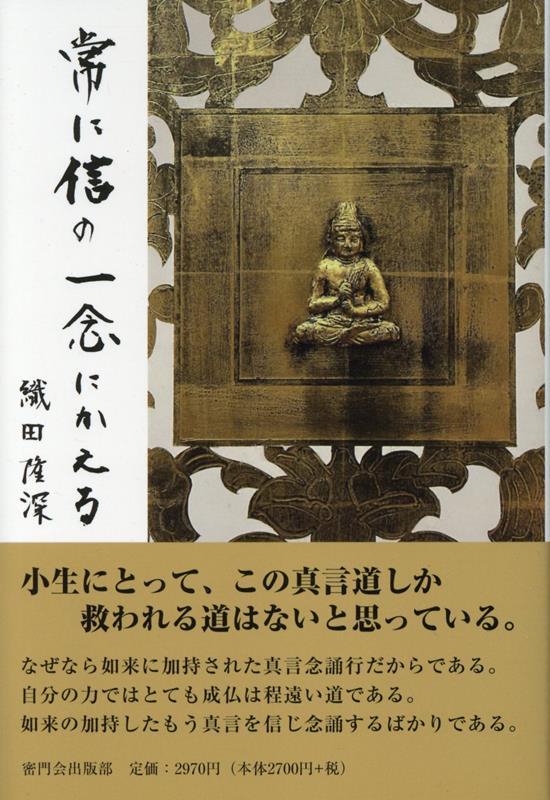 常に信の一念にかえる
織田隆深
小生にとって、この真言道しか
救われる道はないと思っている。
なぜなら如来に加持された真言念誦行だからである。
自分の力ではとても成仏は程遠い道である。
如来の加持したもう真言を信じ念誦するばかりである。
密門会出版部 定価：2970円（本体2700円+税）